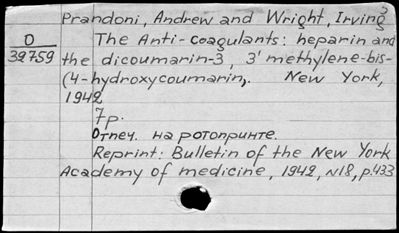 Prandoni, Andrew and Wright, Irving S
O
39759
The Anti-coagulants: heparin and
the dicoumarin-3, 3' methylene-bis-
(4-hydroxycoumarin,. New York,
1942
7p.
Отпеч. на ротопринте.
Reprint: Bulletin of the New York
Academy of medicine, 1942, N18, p.433